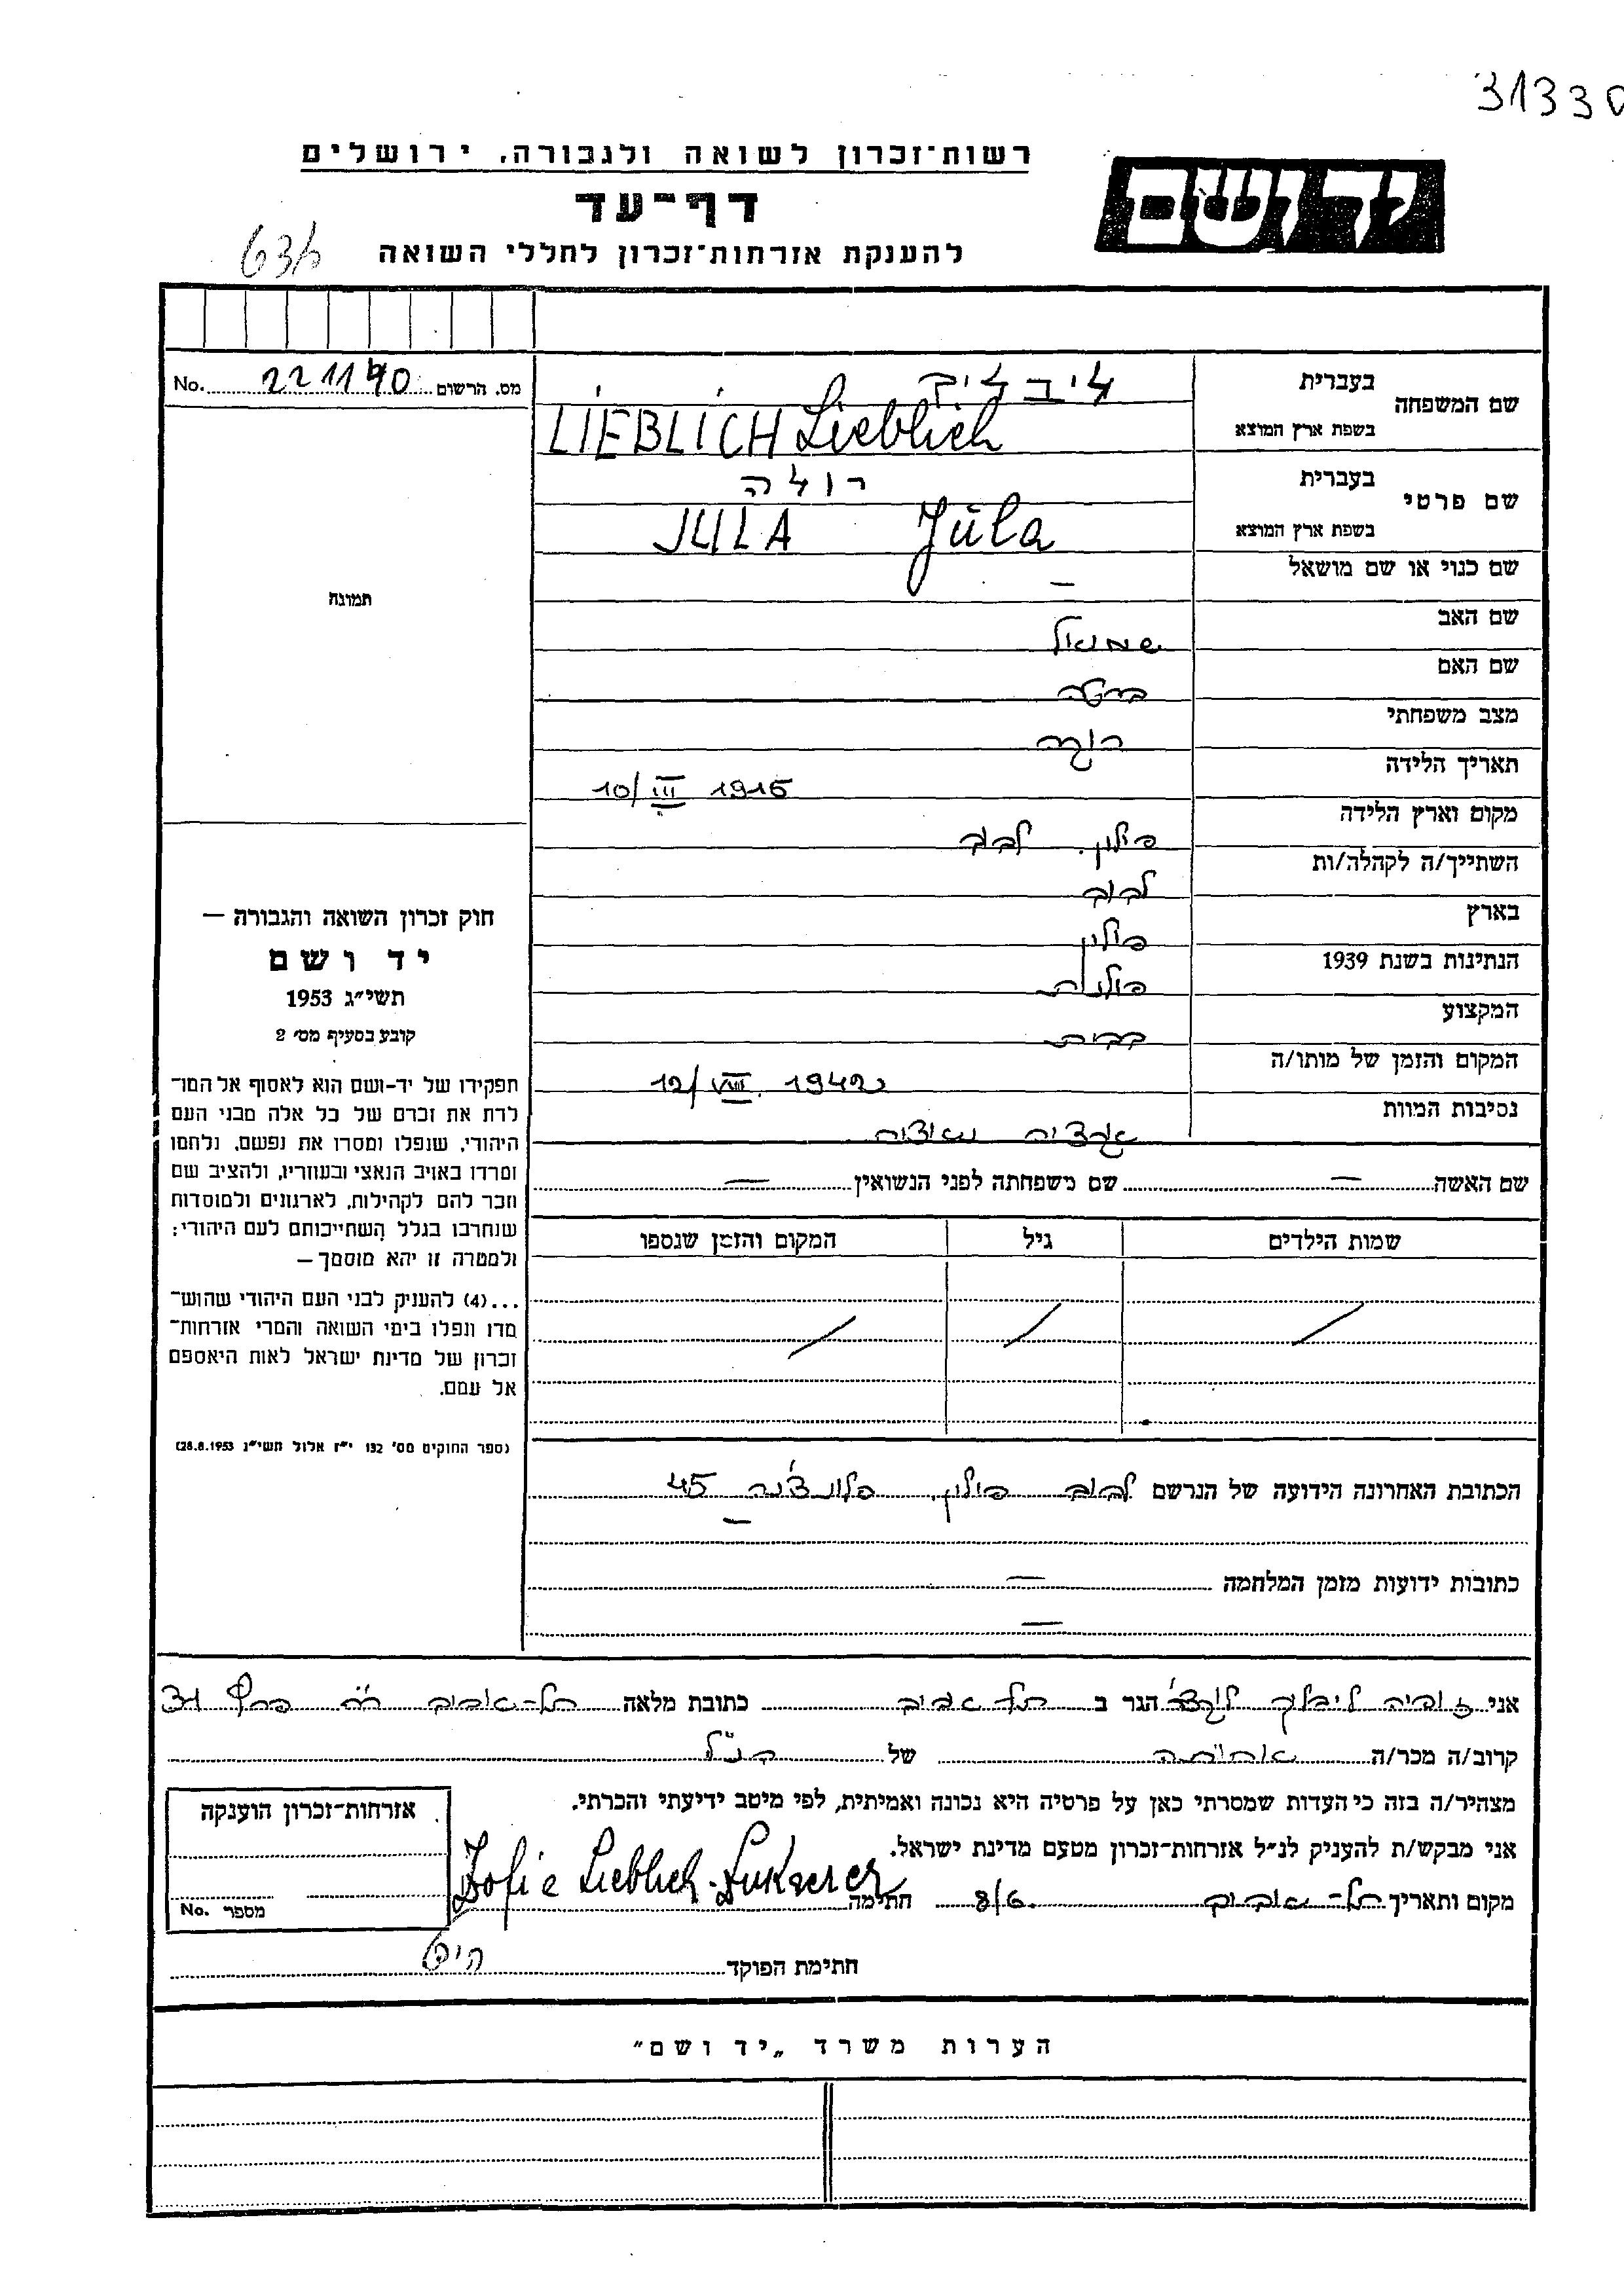 31330
רשות־זכרון לשואה ולגבורה, ירושלים
יד ושם
דף־עד
63h
להענקת אזרחות־זכרון לחללי השואה
מס. הרשום 221140 No.
שם המשפחה
בעברית ליבליך
בשפת ארץ המוצא LIEBLICH Lieblich
שם פרטי
בעברית יולה
בשפת ארץ המוצא JULA Jula
שם כנוי או שם מושאל –
שם האב שמואל
שם האם ברטה
מצב משפחתי רווקה
תאריך הלידה 10/III 1915
מקום וארץ הלידה פולין. לבוב
השתייך/ה לקהלה/ות לבוב
בארץ פולין
הנתינות בשנת 1939 פולנית
המקצוע
המקום והזמן של מותו/ה 12/VIII. 1942
נסיבות המוות אקציה נאצית
תמונה
חוק זכרון השואה והגבורה —
יד ושם
תשי״ג 1953
קובע בסעיף מס׳ 2
תפקידו של יד-ושם הוא לאסוף אל המו־
לדת את זכרם של כל אלה מבני העם
היהודי, שנפלו ומסרו את נפשם, נלחמו
ומרדו באויב הנאצי ובעוזריו, ולהציב שם
וזכר להם לקהילות, לארגונים ולמוסדות
שנחרבו בגלל השתייכותם לעם היהודי;
ולמטרה זו יהא מוסמך —
...(4) להעניק לבני העם היהודי שהוש־
מדו ונפלו בימי השואה והמרי אזרחות־
זכרון של מדינת ישראל לאות היאספם
אל עמם.
(ספר החוקים מס׳ 132 י״ז אלול תשי״ג 28.8.1953)
שם האשה — שם משפחתה לפני הנשואין —
שמות הילדים גיל המקום והזמן שנספו
הכתובת האחרונה הידועה של הנרשם לבוב פולין. 45
כתובות ידועות מזמן המלחמה —
—
אני זופיה ליבליך הגר ב תל-אביב כתובת מלאה תל-אביב
קרוב/ה מכר/ה אחותה של הנ״ל
מצהיר/ה בזה כי העדות שמסרתי כאן על פרטיה היא נכונה ואמיתית, לפי מיטב ידיעתי והכרתי.
אני מבקש/ת להעניק לנ״ל אזרחות־זכרון מטעם מדינת ישראל.
מקום ותאריך תל-אביב 8/6. חתימה Zofie Lieblich-
אזרחות־זכרון הוענקה
מספר No.
חתימת הפוקד
הערות משרד „יד ושם״